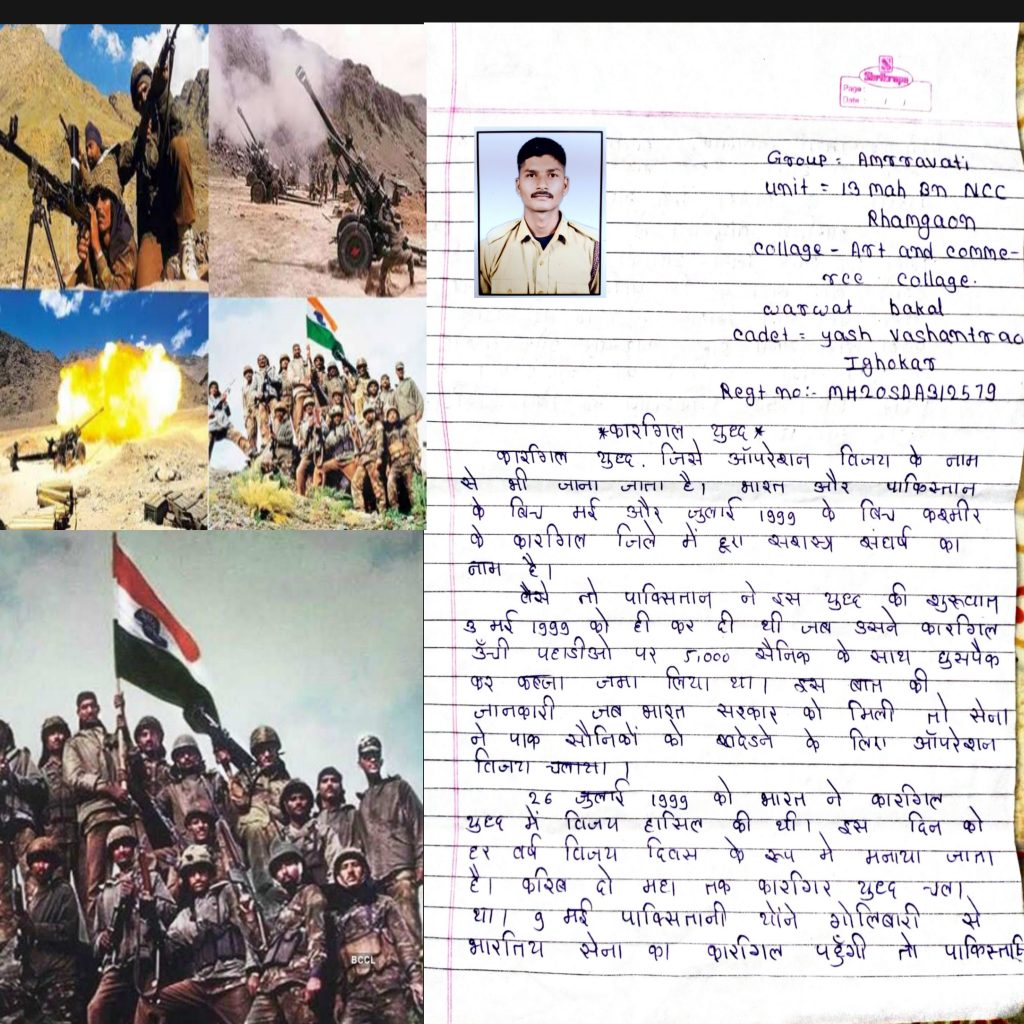 Shrikrupa
Page :
Date : / /
Group = Amrravati
unit = 13 mah Bn NCC
Khamgaon
collage - Art and comme-
rce collage.
warwat bakal
cadet = yash vashamtrao
Ighokar
Regt no:- MH20SDA312579
*कारगिल युध्द*
कारगिल युध्द. जिसे ऑपरेशन विजय के नाम
से भी जाना जाता है। भारत और पाकिस्तान
के बिच मई और जुलाई 1999 के बिच कश्मीर
के कारगिल जिले में हूरा सशस्त्र संघर्ष का
नाम है।
वैसे तो पाकिसतान ने इस युध्द की शुरूवात
3 मई 1999 को ही कर दी थी जब उसने कारगिल
ऊँची पहाडीओ पर 5,000 सैनिक के साथ घुसपैक
कर कब्जा जमा लिया था। इस बात की
जानकारी जब भारत सरकार को मिली तो सेना
ने पाक सौनिकों को खदेडने के लिए ऑपरेशन
विजय चलाया।
26 जुलाई 1999 को भारत ने कारगिल
युध्द में विजय हासिल की थी। इस दिन को
हर वर्ष विजय दिवस के रूप मे मनाया जाता
है। करिब दो महा तक कारगिर युध्द चला
था। 9 मई पाकिस्तानी गोलिबारी से
भारतिय सेना का कारगिल पहुँगी तो
BCCL